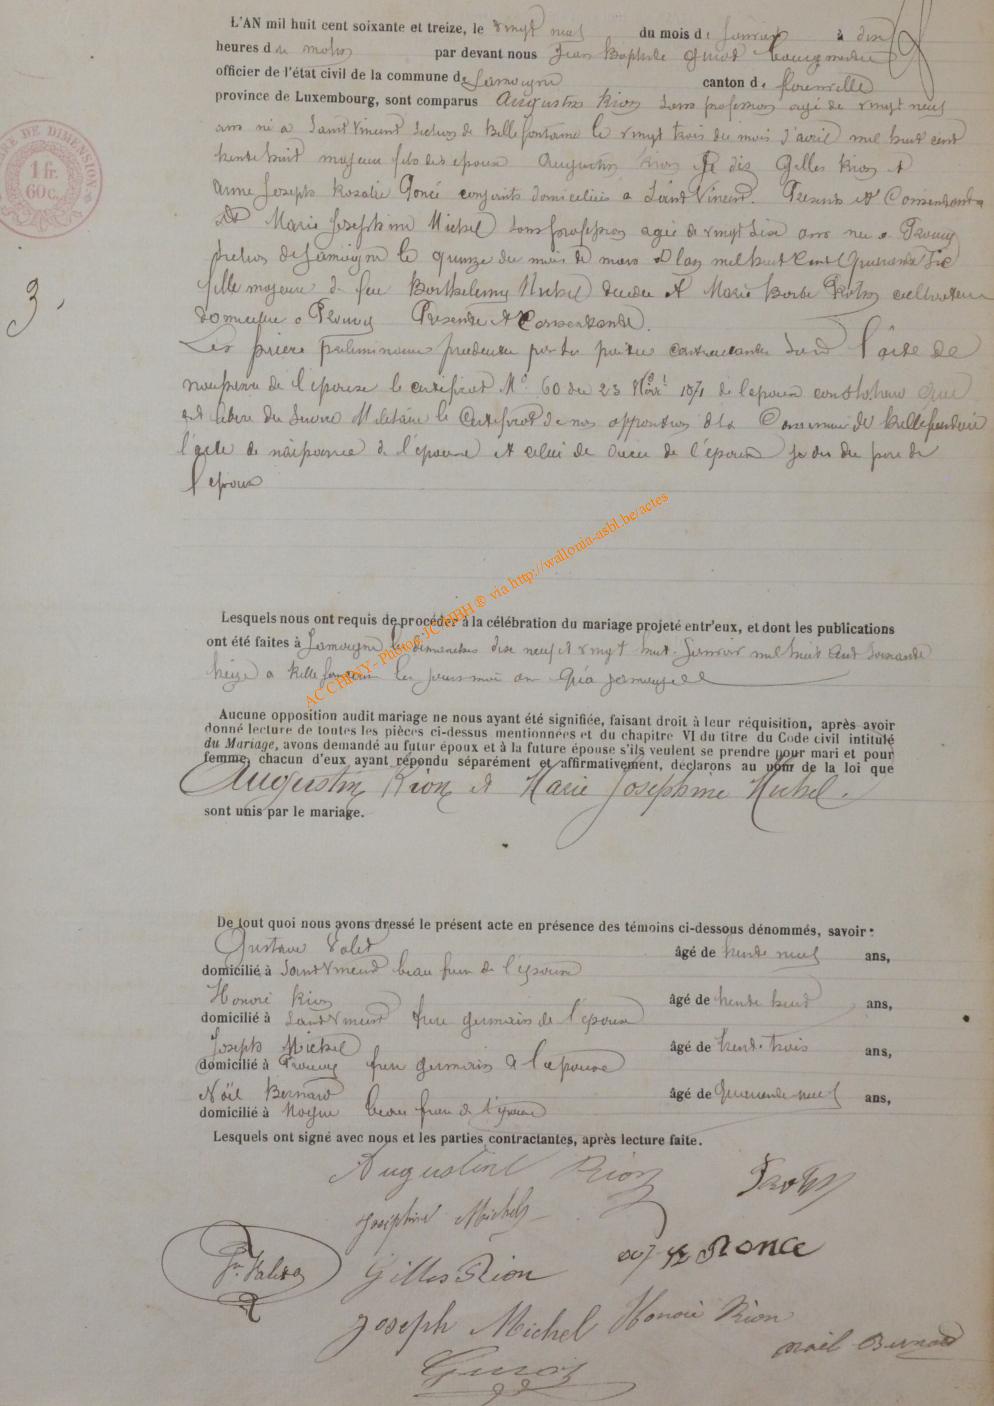 L'AN mil huit cent soixante et treize, le vingt neuf du mois de Janvier à dix
heures du matin par devant nous Jean Baptiste Guiot bourgmestre
officier de l'état civil de la commune de Jamoigne canton de florenville
province de Luxembourg, sont comparus Augustin Rion sans profession agé de vingt neuf
ans né a Saint Vincent section de Bellefontaine le vingt trois du mois d'avril mil huit cent
majeur fils des époux Augustin Rion dit Gilles Rion et
Anne Joseph Rosalie Poncé conjoints domiciliés a Saint Vincent. Presents et Consentants
Et Marie Josephine Michel sans profession agée de vingt six ans née a Prouvy
section de Jamoigne le quinze du mois de mars de l'an mil huit cent quarante six
fille majeure de feu Barthelemy Michel décédé et Marie Barbe cultivatrice
domiciliée a Prouvy Presente et Consentante.
3.
Les pièces préliminaires produites par les parties contractantes sont l'acte de
naissance de l'épouse le certificat N° 60 du 23 1871 de l'époux constatant que
est libéré du service Militaire le Certificat de non opposition de la Commune de Bellefontaine
l'acte de naissance de l'époux et celui de décès de l'époux du père de
l'épouse
TIMBRE DE DIMENSION
1 fr.
60c.
AC CHINY - Photos JC MBH ® via http://wallonia-asbl.be/actes
Lesquels nous ont requis de procéder à la célébration du mariage projeté entr'eux, et dont les publications
ont été faites à Jamoigne les dimanches dix neuf et vingt Janvier mil huit cent soixante
treize a Bellefontaine les jours
Aucune opposition audit mariage ne nous ayant été signifiée, faisant droit à leur réquisition, après avoir
donné lecture de toutes les pièces ci-dessus mentionnées et du chapitre VI du titre du Code civil intitulé
du Mariage, avons demandé au futur époux et à la future épouse s'ils veulent se prendre pour mari et pour
femme, chacun d'eux ayant répondu séparément et affirmativement, déclarons au nom de la loi que
Augustin Rion et Marie Josephine Michel.
sont unis par le mariage.
De tout quoi nous avons dressé le présent acte en présence des témoins ci-dessous dénommés, savoir:
Gustave âgé de trente neuf ans,
domicilié à Saint Vincent beau frère de l'époux
Honoré Rion âgé de trente huit ans,
domicilié à Saint Vincent frère germain de l'époux
Joseph Michel âgé de trente trois ans,
domicilié à Prouvy frère germain de l'épouse
Noël Bernard âgé de quarante neuf ans,
domicilié à Moyen beau frère de l'épouse
Lesquels ont signé avec nous et les parties contractantes, après lecture faite.
Augustin Rion
Joséphine Michel
Gilles Rion
Ponce
Joseph Michel Honoré Rion
Noël Bernard
Guiot